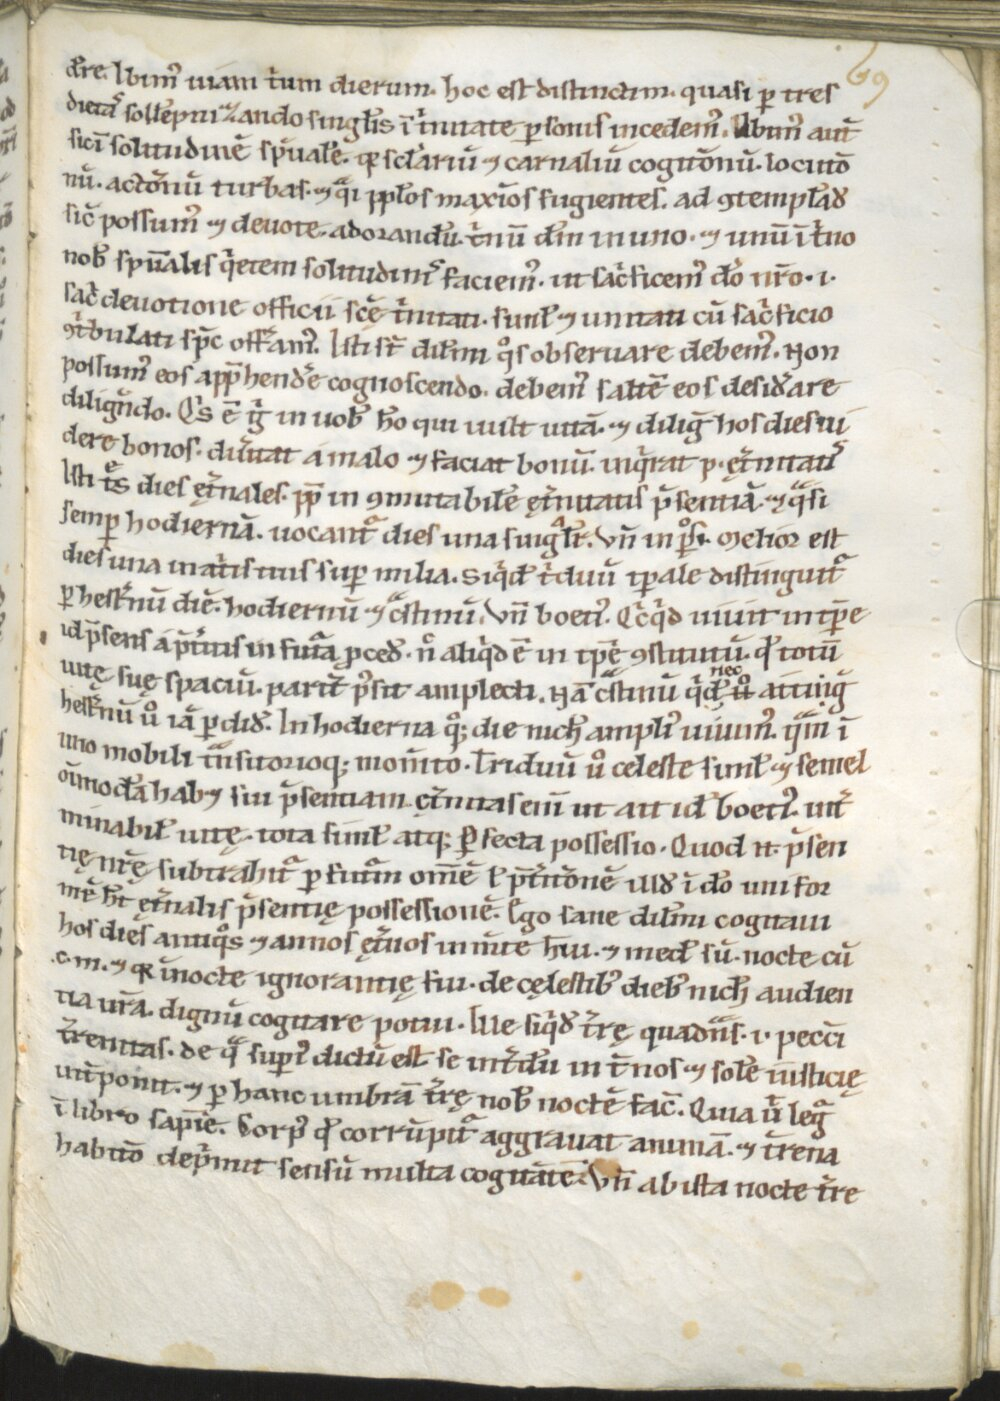 69
dr̄e. Ibim᷒ uiam t͛um dierum. hoc est distinctim. quasi ꝑ tres
dieta᷒ soll̄epnizando singl̄is ī t͛nitate ꝑsonis incedem᷒. Ibim᷒ aut̄
sic̄ī solitudinē sp̄uale. qꝛ scl̄ariū ⁊ carnaliū cogitōnū. locutō
nū. actōnū turbas. ⁊ qͥ ppl̄os maxīos fugientes. ad ꝯtempl̄ad̄
sic̄ possum᷒ ⁊ deuote. adorandū. t͛nū dm̄ in uno. ⁊ unū ī t͛no
nob̄ sp̄ualis qͥetem solitudinis faciem᷒. ut sac͛ficem᷒ dō nr̄o. i.
sac͛ deuotione officii scę̄ t͛nitati. siml̄ ⁊ unitati cū sac͛ficio
ꝯt͛bulati sp̄c offeram᷒. Isti st̄ dil̄mi qͦs obseruare debem᷒. Non
possum᷒ eos app̄hendēre cognoscendo. debem᷒ saltē eos desid͛are
dilign̄do. Qͥs ē iḡ in uob̄ hō qui uult uitā. ⁊ diliḡ hos dies ui
dere bonos. diu͛tat a malo ⁊ faciat bonū. inqͥrat p. ęt͛nitatis
Isti tͤs dies ęt͛nales. ꝓp̄ in ꝯmutabil̄e ęt͛nitatis p̄sentiā. ⁊ qͣsi
semꝑ hodiernā. uocant᷑ dies una singl̄r. Vn̄ in pͦs. Melior est
dies una in at͛is tuis suꝑ milia. Siqͥd t͛duū tꝑale distinguit᷑
ꝑ hest͛nū diē. hodiernū ⁊ cͣstinū. Vn̄ boeti᷒. Qͥcqͥd uiuit in tꝑe
id p̄sens a p̄t͛itis in futͣa ꝓced̄. n̄ aliqͥd ē in tꝑē ꝯstitutū. qd̄ totū
uitę suę spaciū. parit̄ p͛sit amplecti. Nā cͣstinū qͥd nec̄ atting͛
hest͛nū uͦ iā ꝑdid̄. In hodierna qͦꝫ die nich̄ ampli᷒ uiuim᷒. qͣm ī
uno mobili tͣnsitorioqꝫ mom̄to. Triduū uͦ celeste siml̄ ⁊ semel
oīmodā hab⁊ sui p̄sentiam. ęt͛nitas enī ut ait id̄ boeti᷒. int͛
minabil̄ uitę. tota siml̄ atqꝫ ꝑfecta possessio. Quod n. p̄sen
tię nr̄ę subtrahit᷑ ꝑ futͣm omē ł p̄t͛itōnē illd̄ ī dō uni for
mē̄ ht̄ ęt͛nalis p̄sentię possessionē. Ego sane dil̄mi cogitaui
hos dies antiqͦs ⁊ annos ęt͛nos in m̄te hui. ⁊ med̄ sū. nocte cū
.c. m. ⁊ qꝛ ī nocte ignorantię fui. de cęlestib̄ dieb̄ nich̄ audien
tia ur̄a. dignū cogitare potui. Me siqͥd t͛rę quad̄nͣs. i. pecc̄i
t͛renitas. de qͣ super᷒ dictū est se int͛dū in t͛nos ⁊ sole iusticię
uir̄ ponit. ⁊ ꝑ hanc umbrā t͛rę nob̄ noctē fac̄. Quia u͛ legͥ
ī libro sapiē. Corp᷒ qd̄ corrūpit᷑ aggrauat animā. ⁊ t͛rena
habitō dep͛mit sensū multa cogitātē. Vn̄ ab ista nocte t͛re